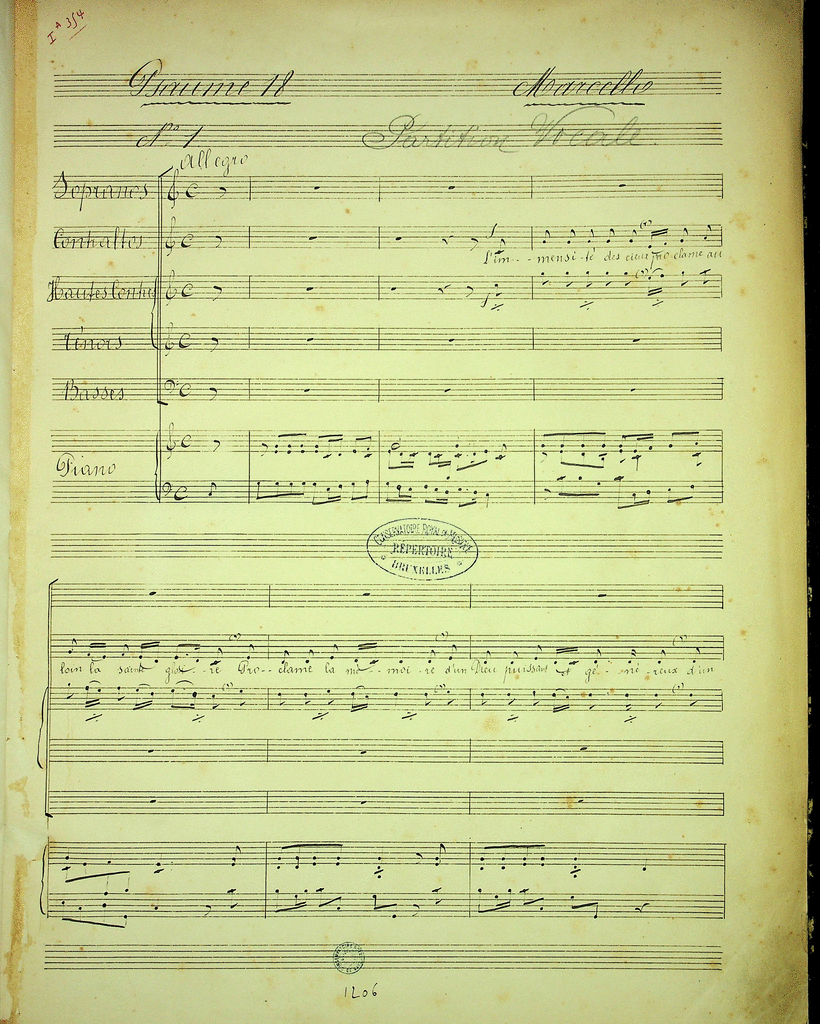 I A 354
Psaume 18 Marcello
No 1 Partition Vocale
Allegro
Sopranos
Contraltos
L'im - - mensi - té des cieux proclame au
Hautes Contres
Ténors
Basses
Piano
CONSERVATOIRE ROYAL DE MUSIQUE
RÉPERTOIRE
BRUXELLES
loin ta sainte gloi - re Pro - - clame la mé - - moi - re d'un Dieu puissant et gé - né - reux d'un
1206